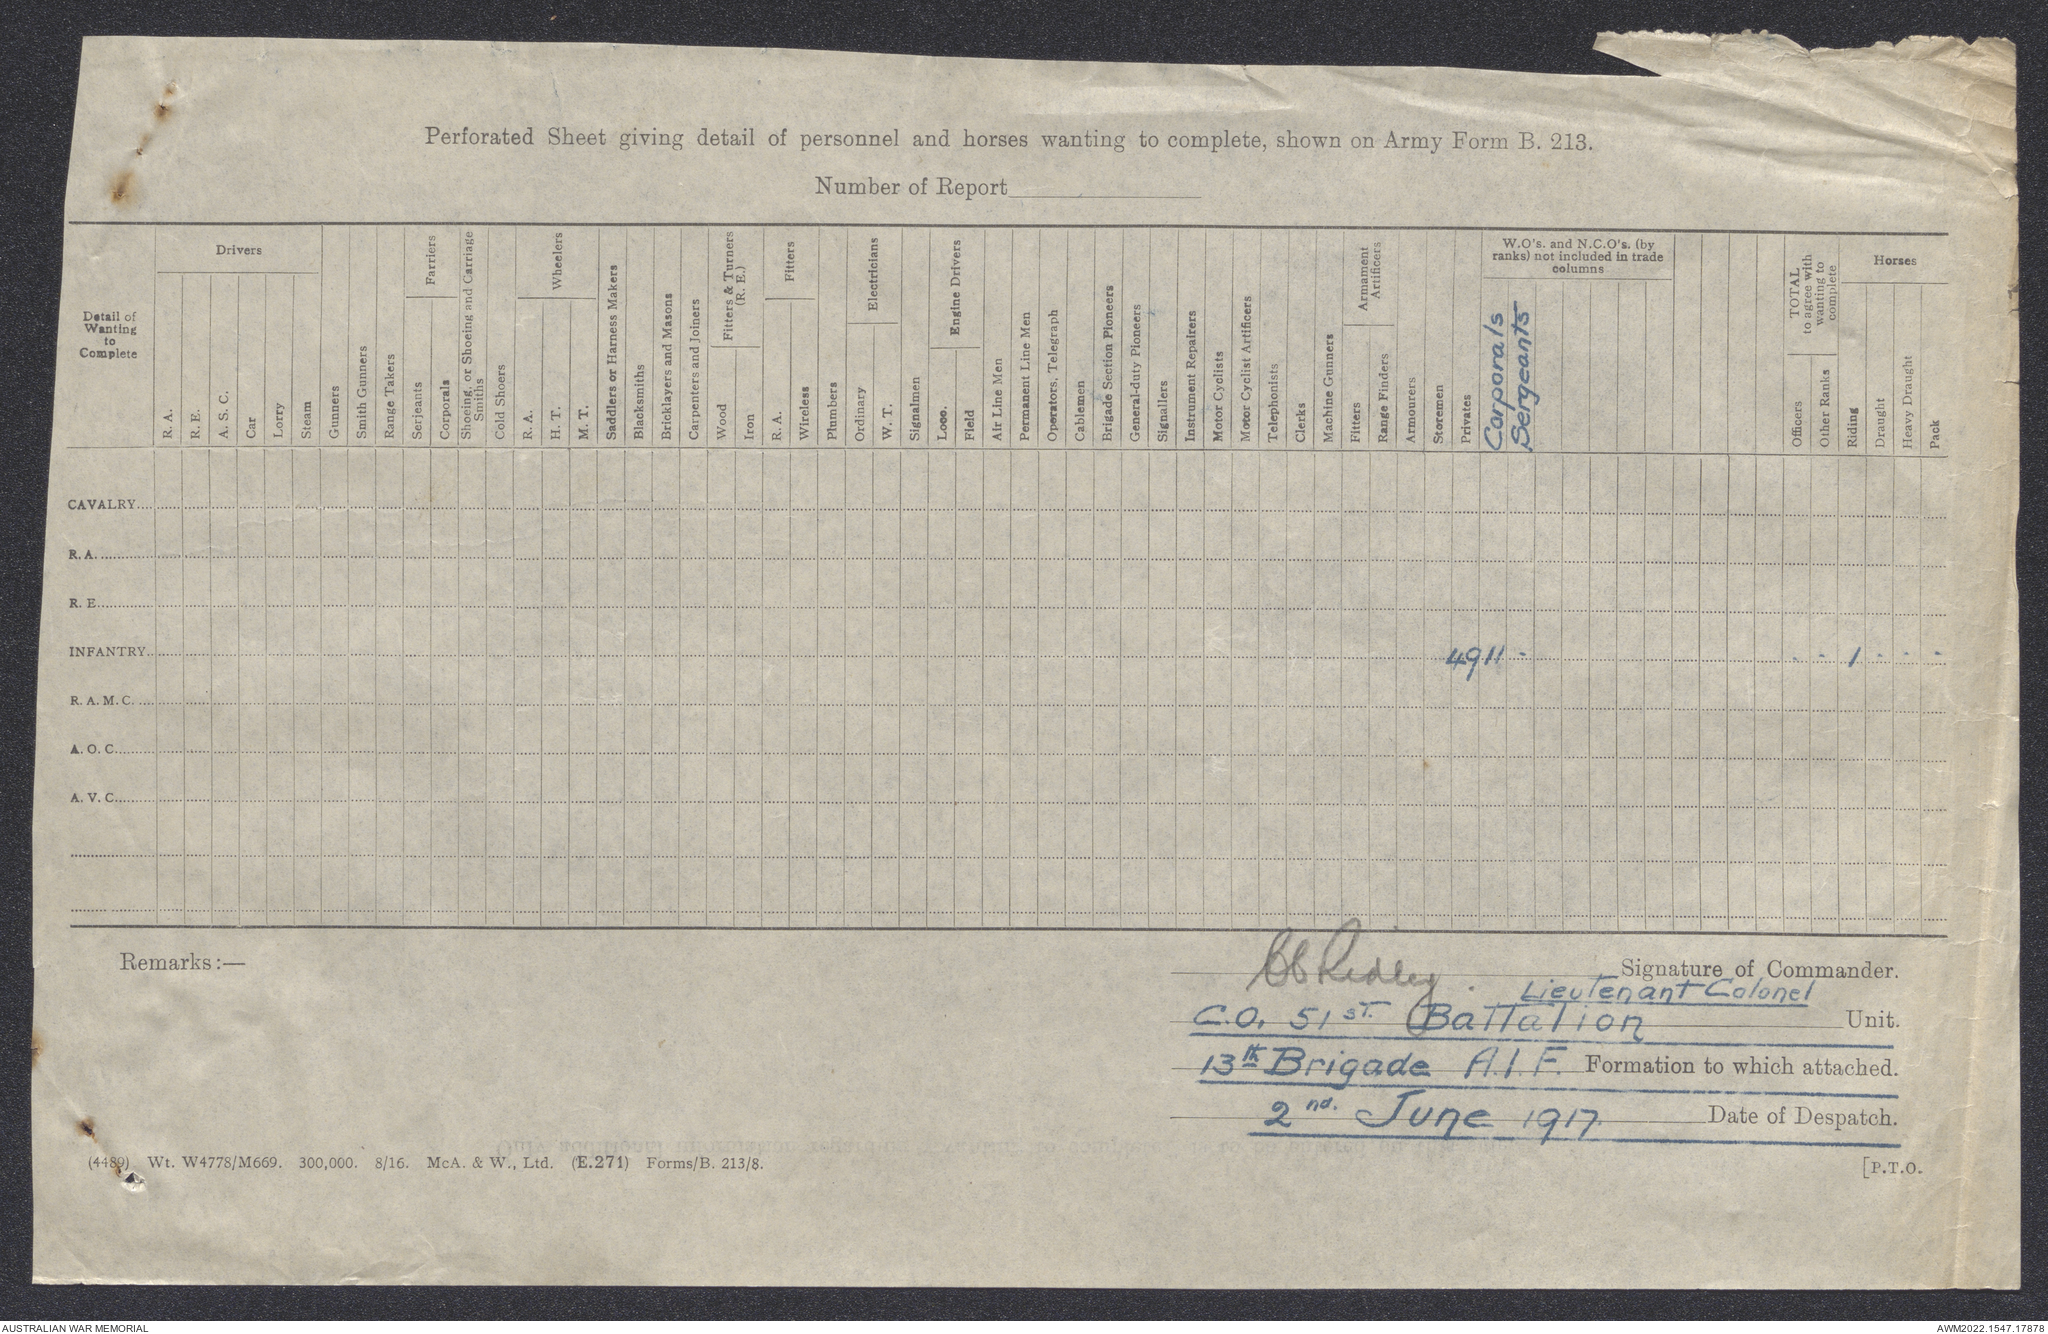 Perforated Sheet giving detail of personnel and horses wanting to complete, shown on Army Form B. 213.
Number of Report
Detail of
Wanting
to
Complete
Drivers
R. A.
R. E.
A. S. C.
Car
Lorry
Steam
Gunners
Smith Gunners
Range Takers
Farriers
Serjeants
Corporals
Shoeing, or Shoeing and Carriage
Smiths
Cold Shoers
Wheelers
R. A.
H. T.
M. T.
Saddlers or Harness Makers
Blacksmiths
Bricklayers and Masons
Carpenters and Joiners
Fitters & Turners
(R. E.)
Wood
Iron
Fitters
R. A.
Wireless
Plumbers
Electricians
Ordinary
W. T.
Signalmen
Engine Drivers
Loco.
Field
Air Line Men
Permanent Line Men
Operators, Telegraph
Cablemen
Brigade Section Pioneers
General-duty Pioneers
Signallers
Instrument Repairers
Motor Cyclists
Motor Cyclist Artificers
Telephonists
Clerks
Machine Gunners
Armament
Artificers
Fitters
Range Finders
Armourers
Storemen
Privates
W.O's. and N.C.O's. (by
ranks) not included in trade
columns
Corporals
Sergeants
TOTAL
to agree with
wanting to
complete
Officers
Other Ranks
Horses
Riding
Draught
Heavy Draught
Pack
CAVALRY
R. A.
R. E.
INFANTRY 49 11 - - - 1 - - -
R. A. M. C.
A. O. C.
A. V. C.
Remarks:—
CC Ridley Signature of Commander.
Lieutenant Colonel
C.O. 51ST. Battalion Unit.
13th Brigade A.I.F. Formation to which attached.
2nd. June 1917. Date of Despatch.
(4489) Wt. W4778/M669. 300,000. 8/16. McA. & W., Ltd. (E.271) Forms/B. 213/8.
[P.T.O.
AUSTRALIAN WAR MEMORIAL
AWM2022.1547.17878